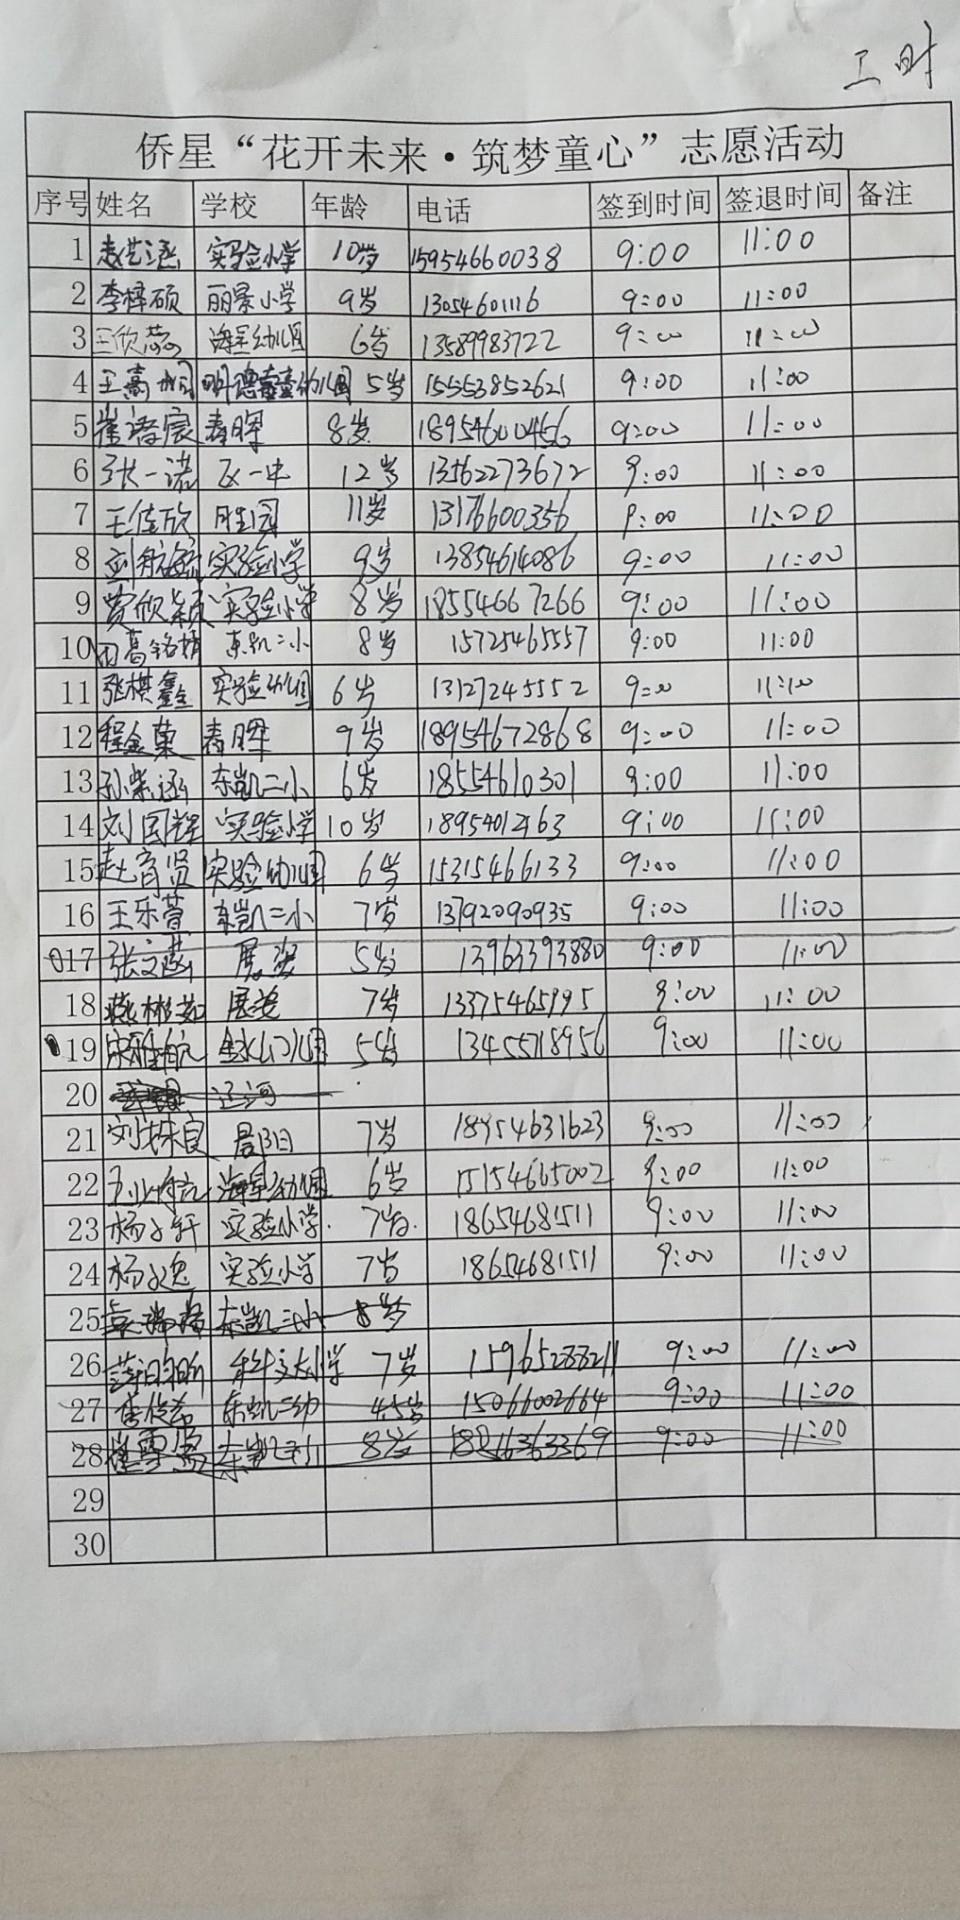 工时
侨星“花开未来·筑梦童心”志愿活动
序号 姓名 学校 年龄 电话 签到时间 签退时间 备注
1 赵艺涵 实验小学 10岁 15954660038 9:00 11:00
2 李梓硕 丽景小学 9岁 13054601116 9:00 11:00
3 王欣蕊 海星幼儿园 6岁 13589983722 9:00 11:00
4 王嘉 明德 幼儿园 5岁 15553852621 9:00 11:00
5 崔诺宸 春晖 8岁 18954600456 9:00 11:00
6 张一诺 一中 12岁 13562273672 9:00 11:00
7 王佳欣 胜园 11岁 13176600356 9:00 11:00
8 刘航 实验小学 9岁 13854614086 9:00 11:00
9 贾欣颖 实验小学 8岁 18554667266 9:00 11:00
10 东凯二小 8岁 15725465557 9:00 11:00
11 张棋鑫 实验幼儿园 6岁 13127245552 9:00 11:00
12 程金 春晖 9岁 18954672868 9:00 11:00
13 孙紫涵 东凯二小 6岁 18554610301 9:00 11:00
14 刘国辉 实验小学 10岁 9:00 11:00
15 赵育贤 实验幼儿园 6岁 15315466133 9:00 11:00
16 王乐萱 东凯二小 7岁 13792090935 9:00 11:00
17 张文 5岁 13963393880 9:00 11:00
18 7岁 13375465995 9:00 11:00
19 幼儿园 5岁 13455718956 9:00 11:00
20 辽河
21 刘 晨阳 7岁 18954631623 9:00 11:00
22 海星幼儿园 6岁 15154665002 9:00 11:00
23 杨子轩 实验小学 7岁 18654681511 9:00 11:00
24 杨 实验小学 7岁 18654681511 9:00 11:00
25 东凯二小 8岁
26 7岁 15965288211 9:00 11:00
27 东凯二幼 4.5岁 15066002664 9:00 11:00
28 崔雪 8岁 9:00 11:00
29
30